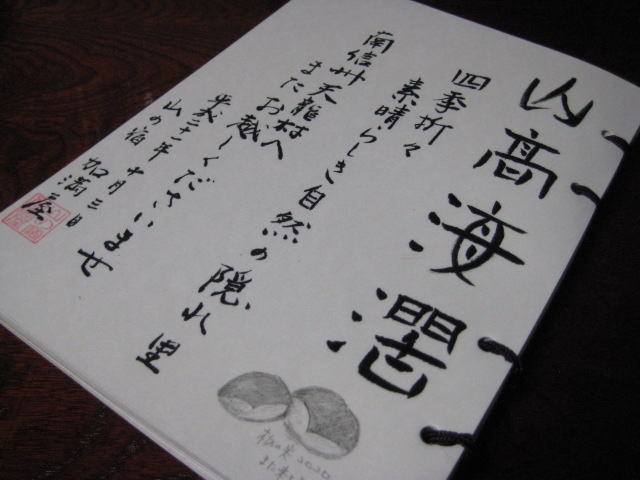 山高海濶
四季折々
素晴らしき自然の隠れ里
南信州天龍村へ
またお越しくださいませ
平成二十年十月三日
山の宿 加満屋